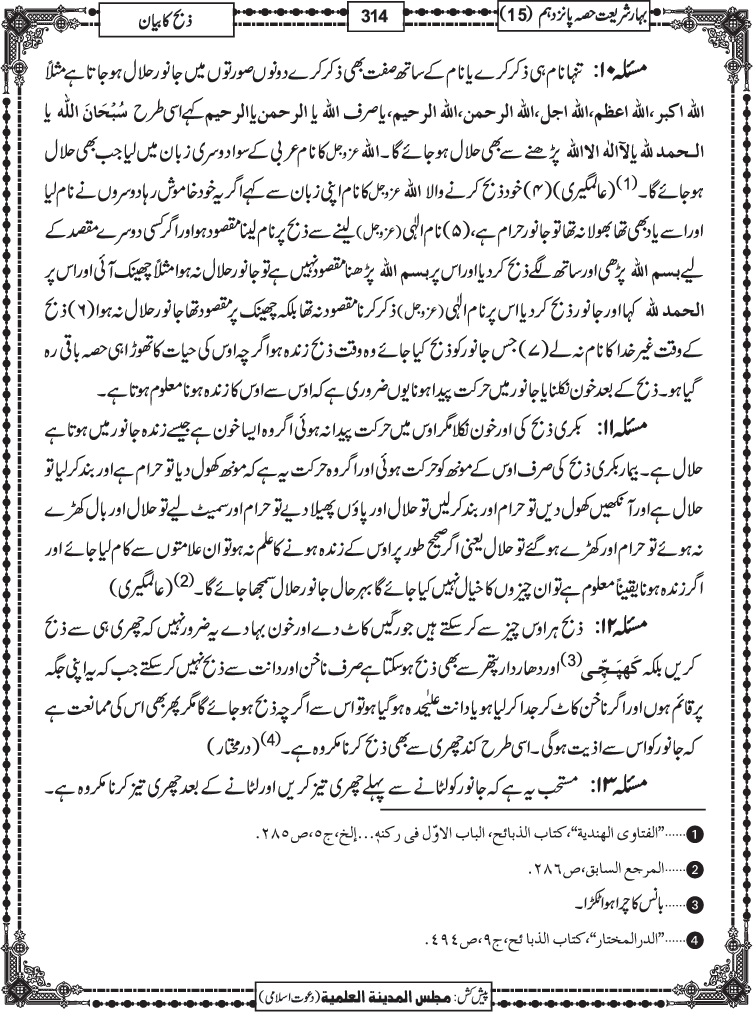 بہار شریعت حصہ پانزدہم (15)
314
ذبح کا بیان
مسئلہ ۱۰: تنہا نام ہی ذکر کرے یا نام کے ساتھ صفت بھی ذکر کرے دونوں صورتوں میں جانور حلال ہو جاتا ہے مثلاً
اللہ اکبر، اللہ اعظم، اللہ اجل، اللہ الرحمن، اللہ الرحیم، یا صرف اللہ یا الرحمن یا الرحیم کہے اسی طرح سُبْحَانَ اللّٰہ یا
الـحمد للہ یا لآالٰہ الااللہ پڑھنے سے بھی حلال ہو جائے گا۔ اللہ عزوجل کا نام عربی کے سوا دوسری زبان میں لیا جب بھی حلال
ہو جائے گا۔(1) (عالمگیری) (۴) خود ذبح کرنے والا اللہ عزوجل کا نام اپنی زبان سے کہے اگر یہ خود خاموش رہا دوسروں نے نام لیا
اور اسے یاد بھی تھا بھولا نہ تھا تو جانور حرام ہے، (۵) نام الٰہی (عزوجل) لینے سے ذبح پر نام لینا مقصود ہو اور اگر کسی دوسرے مقصد کے
لیے بسم اللہ پڑھی اور ساتھ لگے ذبح کر دیا اور اس پر بسم اللہ پڑھنا مقصود نہیں ہے تو جانور حلال نہ ہوا مثلاً چھینک آئی اور اس پر
الحمد للہ کہا اور جانور ذبح کر دیا اس پر نام الٰہی (عزوجل) ذکر کرنا مقصود نہ تھا بلکہ چھینک پر مقصود تھا جانور حلال نہ ہوا (۶) ذبح
کے وقت غیر خدا کا نام نہ لے (۷) جس جانور کو ذبح کیا جائے وہ وقت ذبح زندہ ہو اگرچہ اوس کی حیات کا تھوڑا ہی حصہ باقی رہ
گیا ہو۔ ذبح کے بعد خون نکلنا یا جانور میں حرکت پیدا ہونا یوں ضروری ہے کہ اوس سے اوس کا زندہ ہونا معلوم ہوتا ہے۔
مسئلہ ۱۱: بکری ذبح کی اور خون نکلا مگر اوس میں حرکت پیدا نہ ہوئی اگر وہ ایسا خون ہے جیسے زندہ جانور میں ہوتا ہے
حلال ہے۔ بیمار بکری ذبح کی صرف اوس کے مونھ کو حرکت ہوئی اور اگر وہ حرکت یہ ہے کہ مونھ کھول دیا تو حرام ہے اور بند کر لیا تو
حلال ہے اور آنکھیں کھول دیں تو حرام اور بند کر لیں تو حلال اور پاؤں پھیلا دیے تو حرام اور سمیٹ لیے تو حلال اور بال کھڑے
نہ ہوئے تو حرام اور کھڑے ہو گئے تو حلال یعنی اگر صحیح طور پر اوس کے زندہ ہونے کا علم نہ ہو تو ان علامتوں سے کام لیا جائے اور
اگر زندہ ہونا یقیناً معلوم ہے تو ان چیزوں کا خیال نہیں کیا جائے گا بہر حال جانور حلال سمجھا جائے گا۔(2) (عالمگیری)
مسئلہ ۱۲: ذبح ہر اوس چیز سے کر سکتے ہیں جو رگیں کاٹ دے اور خون بہا دے یہ ضرور نہیں کہ چھری ہی سے ذبح
کریں بلکہ کَھپَچّی(3) اور دھاردار پتھر سے بھی ذبح ہو سکتا ہے صرف ناخن اور دانت سے ذبح نہیں کر سکتے جب کہ یہ اپنی جگہ
پر قائم ہوں اور اگر ناخن کاٹ کر جدا کر لیا ہو یا دانت علیٰحدہ ہو گیا ہو تو اس سے اگرچہ ذبح ہو جائے گا مگر پھر بھی اس کی ممانعت ہے
کہ جانور کو اس سے اذیت ہوگی۔ اسی طرح کند چھری سے بھی ذبح کرنا مکروہ ہے۔(4) (درمختار)
مسئلہ ۱۳: مستحب یہ ہے کہ جانور کو لٹانے سے پہلے چھری تیز کریں اور لٹانے کے بعد چھری تیز کرنا مکروہ ہے۔
1 ......"الفتاوی الهندیة"، کتاب الذبائح، الباب الاوّل فی رکنہٖ...إلخ، ج٥، ص٢٨٥.
2 ......المرجع السابق، ص٢٨٦.
3 ......بانس کا چرا ہوا ٹکڑا۔
4 ......"الدرالمختار"، کتاب الذبائح، ج٩، ص٤٩٤.
پیش کش: مجلس المدینة العلمیة (دعوت اسلامی)